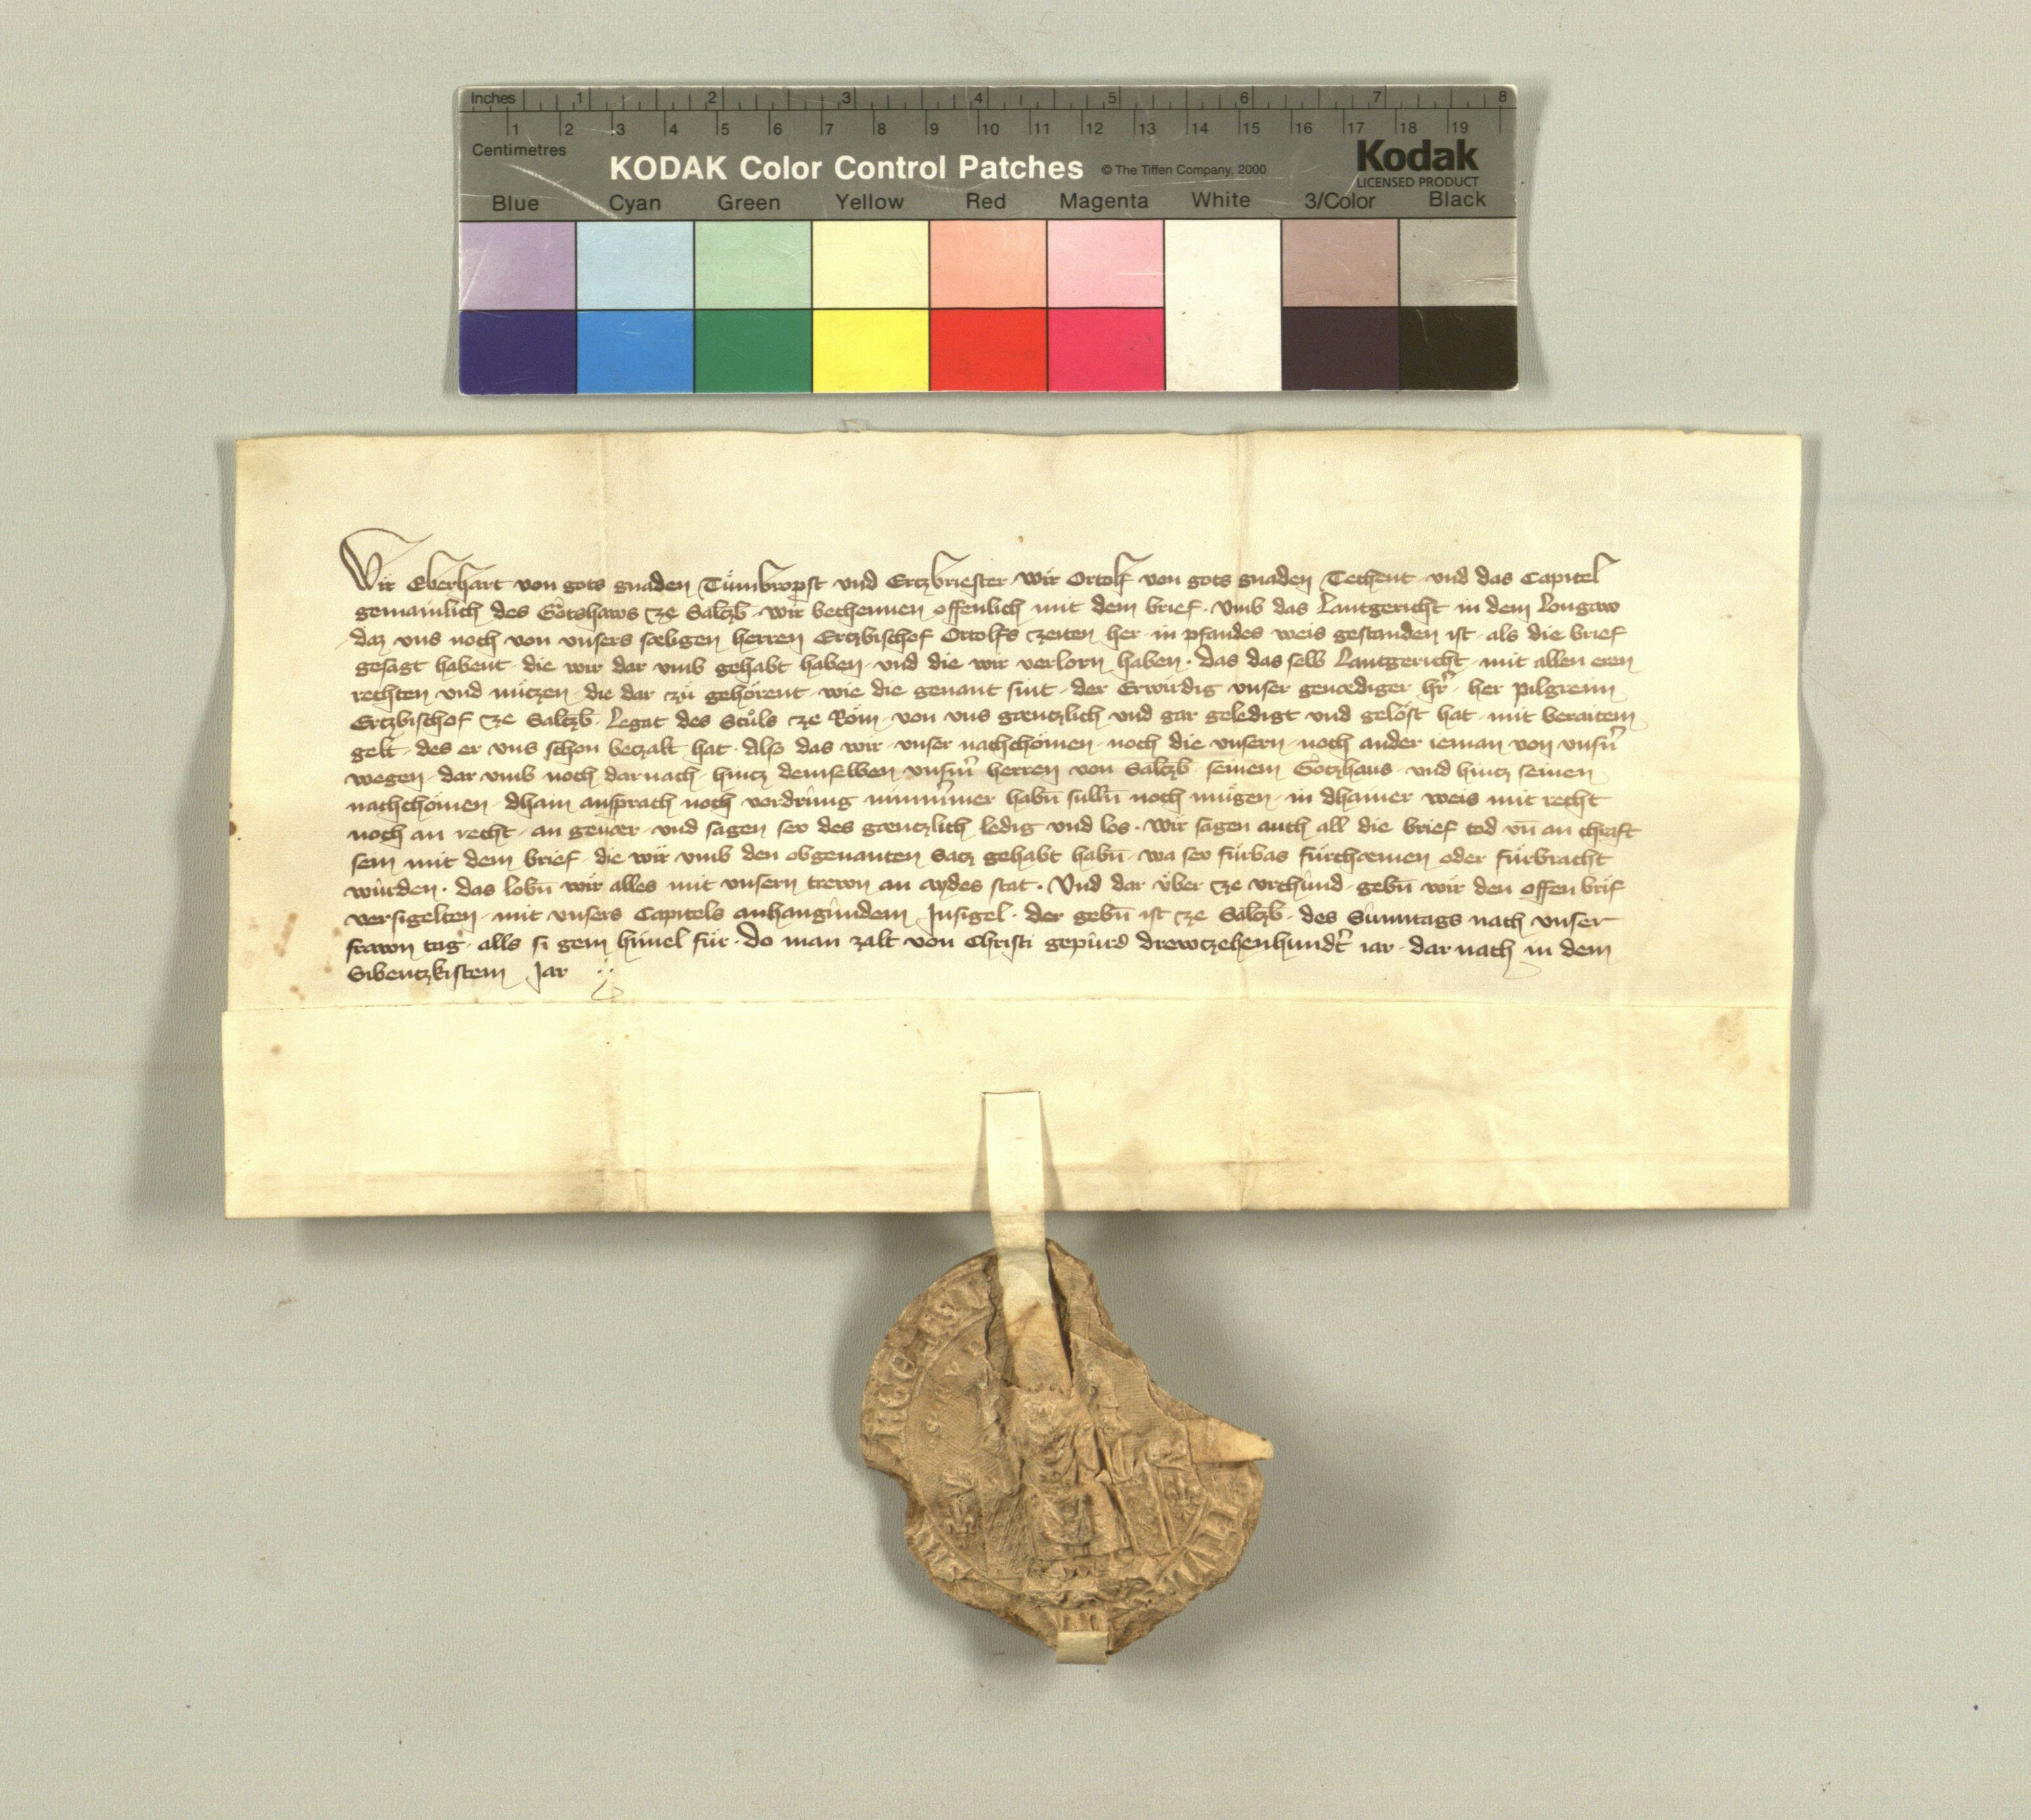 Inches 1 2 3 4 5 6 7 8
1 2 3 4 5 6 7 8 9 10 11 12 13 14 15 16 17 18 19
Centimetres
KODAK Color Control Patches © The Tiffen Company, 2000 Kodak
LICENSED PRODUCT
Blue Cyan Green Yellow Red Magenta White 3/Color Black
Wir Eberhart von gots gnaden Tůmbropst und Ertzbriester wir Ortolf von gots gnaden Techent und das Capitel
gemainlich des Gotshaws ze Saltzb · wir bechennen offenlich mit dem brief · Vmb das Lantgericht in dem Longaw
daz vns noch von vnsers sæligen herren Ertzbischof Ortolfs zeiten her in pfandes weis gestanden ist · als die brief
gesagt habent · die wir dar vmb gehabt haben · vnd die wir verlorn haben · das das selb Lantgericht · mit allen eren
rechten vnd nützen · die dar zů gehörent · wie die genant sint · der Erwirdig vnser genædiger hr̄ · her pilgreim
Ertzbischof ze Saltzb · Legat des Stůls ze Rom · von vns gæntzlich vnd gar geledigt vnd gelöst hat · mit beraitem
gelt · des er vns schon betzalt hat · Also das wir · vnser nachchömen · noch die vnsern · noch ander ieman von vnsn̄
wegen · dar vmb noch darnach · hintz demselben vnsm̄ herren von Saltzb · seinem Gotzhaus · vnd hintz seinen
nachchömen · dhain ansprach noch vordrung nimmer habn̄ sulln̄ noch mügen · in dhainer weis mit recht
noch an recht · an geuær · vnd sagen seo des gæntzlich ledig vnd los · Wir sagen auch all die brief tod vn̄ an chraft
sein mit dem brief · die wir vmb den obgenanten Satz gehabt habn̄ · wa seo fürbas fürchæmen oder fürbracht
würden · das lobn̄ wir alles mit vnsern trewn an aydes stat · Vnd dar über ze vrchünd · gebn̄ wir den offen brif
versigelten · mit vnsers Capitels anhangundem Insigel · der gebn̄ ist ze Saltzb · des Sunntags nach vnser
frawn tag · alls si gem himel für · Do man zalt von Christi gepürd drewtzehenhundt̄ iar · dar nach in dem
Sibentzkistem Jar